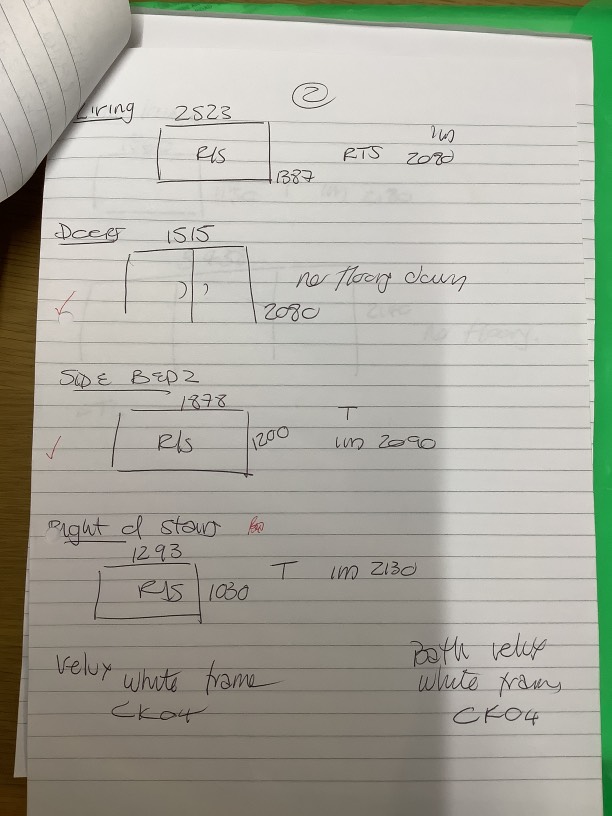 ②
Living 2523
R/S RTS Im 2090
1387
Doors 1515
no floory down
2080
SIDE BED 2
1878
T
R/S 1200 Im 2090
Right of stairs
1293
T Im 2130
R/S 1030
Velux white frame
CK04
Bath velux
white frame
CK04